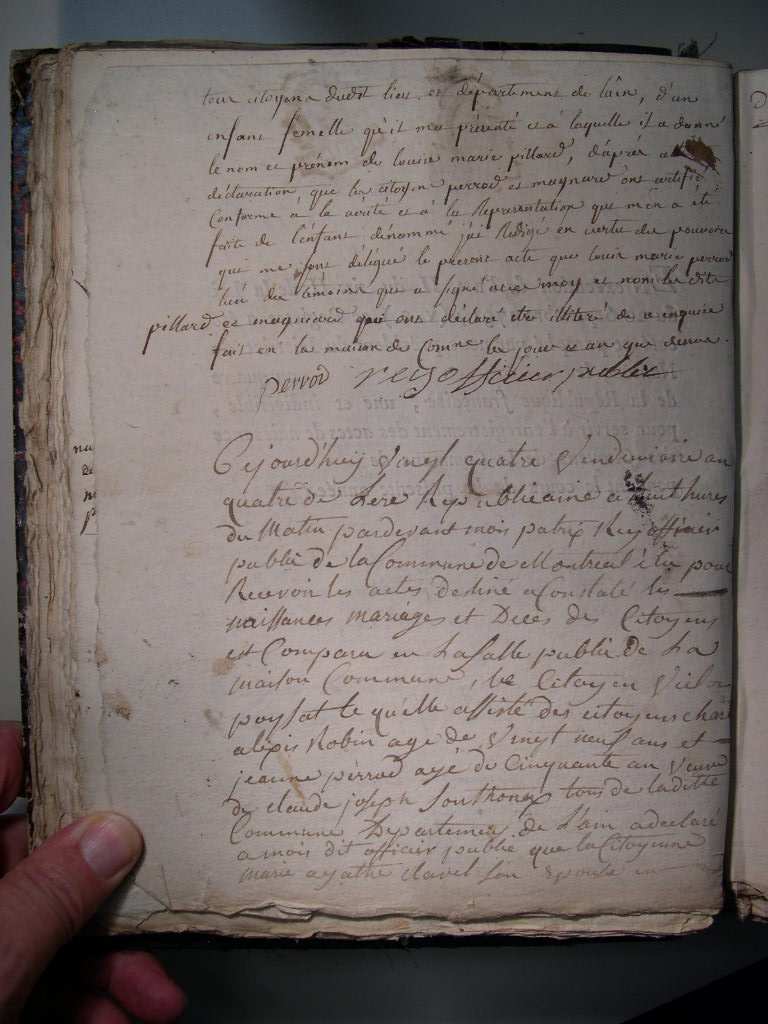 tous citoyens dudit lieu et département de lain, d'un
enfant femelle qu'il m'a présenté et à laquelle il a donné
le nom et prénom de louise marie pillard, d'après
déclaration que les citoyens perrod et magnard ont certifié
Conforme à la vérité et à la Représentation qui m'en a été
faite de l'enfant dénommé j'ai Rédigé en vertu du pouvoirs
qui me sont délégué le present acte que louis marie perrod
lieu de témoins qui a signé avec moy et non les dits
pillard et magniard qui ont déclaré etre illiteré de ce enquise
fait en la maison de Comne les jour et an que dessus.
perrod rey officier public
Cejourd'huy vingt quatre Vendemiaire an
quatre de Lere Republicaine a huit hures
du Matin pardevant mois patrix Rey officier
public de la Commune de Montreal élu pour
Recevoir les actes destiné a Constaté les
naissances mariages et Deces des Citoyens
est Comparu en La Salle public de La
maison Commune, le Citoyen Victor
poysat le quelle assisté des citoyens charl
aléxis Robin age de Vingt neuf ans et
jeanne pérrod agé de Cinquante an veuve
de claude joseph Jouthoney tous de laditte
Commune Departement de Lain a declaré
a mois dit officier public que la Citoyenne
marie agathe clavel son epouse en
na
de
n
p
D